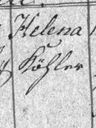 Helena
Köhler